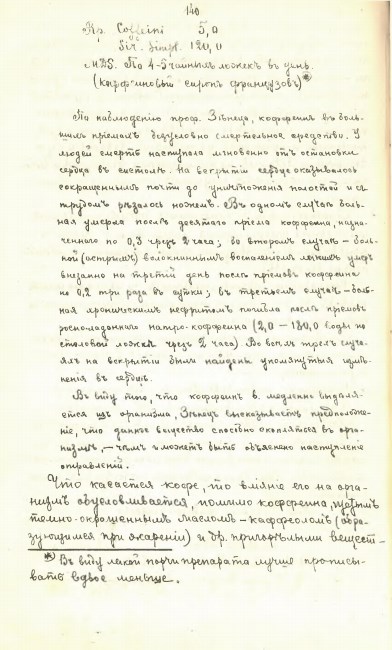 140
Rp. Coffeini 5,0
Sir. simpl. 120,0
MDS. По 4-5 чайныхъ ложекъ въ день.
(кофф‘иновый сиропъ французовъ)*)
По наблюденію проф. Зѣнеца, коффеинъ въ боль-
шихъ пріемахъ безусловно смертельное средство. У
людей смерть наступала мгновенно отъ остановки
сердца въ систолѣ. На вскрытіи сердце оказывалось
сокращеннымъ почти до уничтоженія полостей и съ
трудомъ рѣзалось ножемъ. Въ одномъ случаѣ боль-
ная умерла послѣ десятаго пріема коффеина, назна-
ченнаго по 0,3 чрезъ 2 часа; во второмъ случаѣ - боль-
ной (острымъ) волокниннымъ воспаленіемъ легкихъ умеръ
внезапно на третій день послѣ пріемовъ коффеина
по 0,2 три раза въ сутки; въ третьемъ случаѣ - боль-
ная хроническимъ нефритомъ погибла послѣ пріемовъ
натро-коффеина (2,0 - 180,0 воды по
столовой ложкѣ чрезъ 2 часа) Во всѣхъ трехъ случа-
яхъ на вскрытіи были найдены упомянутыя измѣ-
ненія въ сердцѣ.
Въ виду того, что коффеинъ в. медленно выдѣля-
ется изъ организма, Зѣнецъ высказываетъ предположе-
ніе, что данное вещество способно скопляться въ орга-
низмѣ, - чѣмъ и можетъ быть объяснено наступленіе
отравленій.
Что касается кофе, то вліяніе его на орга-
низмъ обусловливается, помимо коффеина,
темно-окрашеннымъ масломъ - каффеоломъ (обра-
зующимся при жареніи) и др. пригорѣлыми вещест-
*) Въ виду легкой порчи препарата лучше прописы-
вать вдвое меньше.